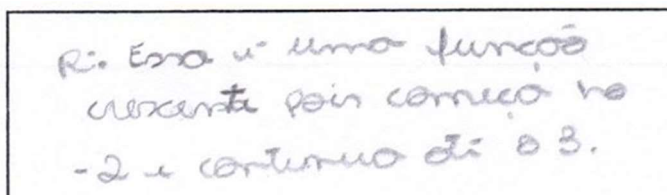 R:. Essa é uma função
crescente pois começa no
-2 e continua até o 3.